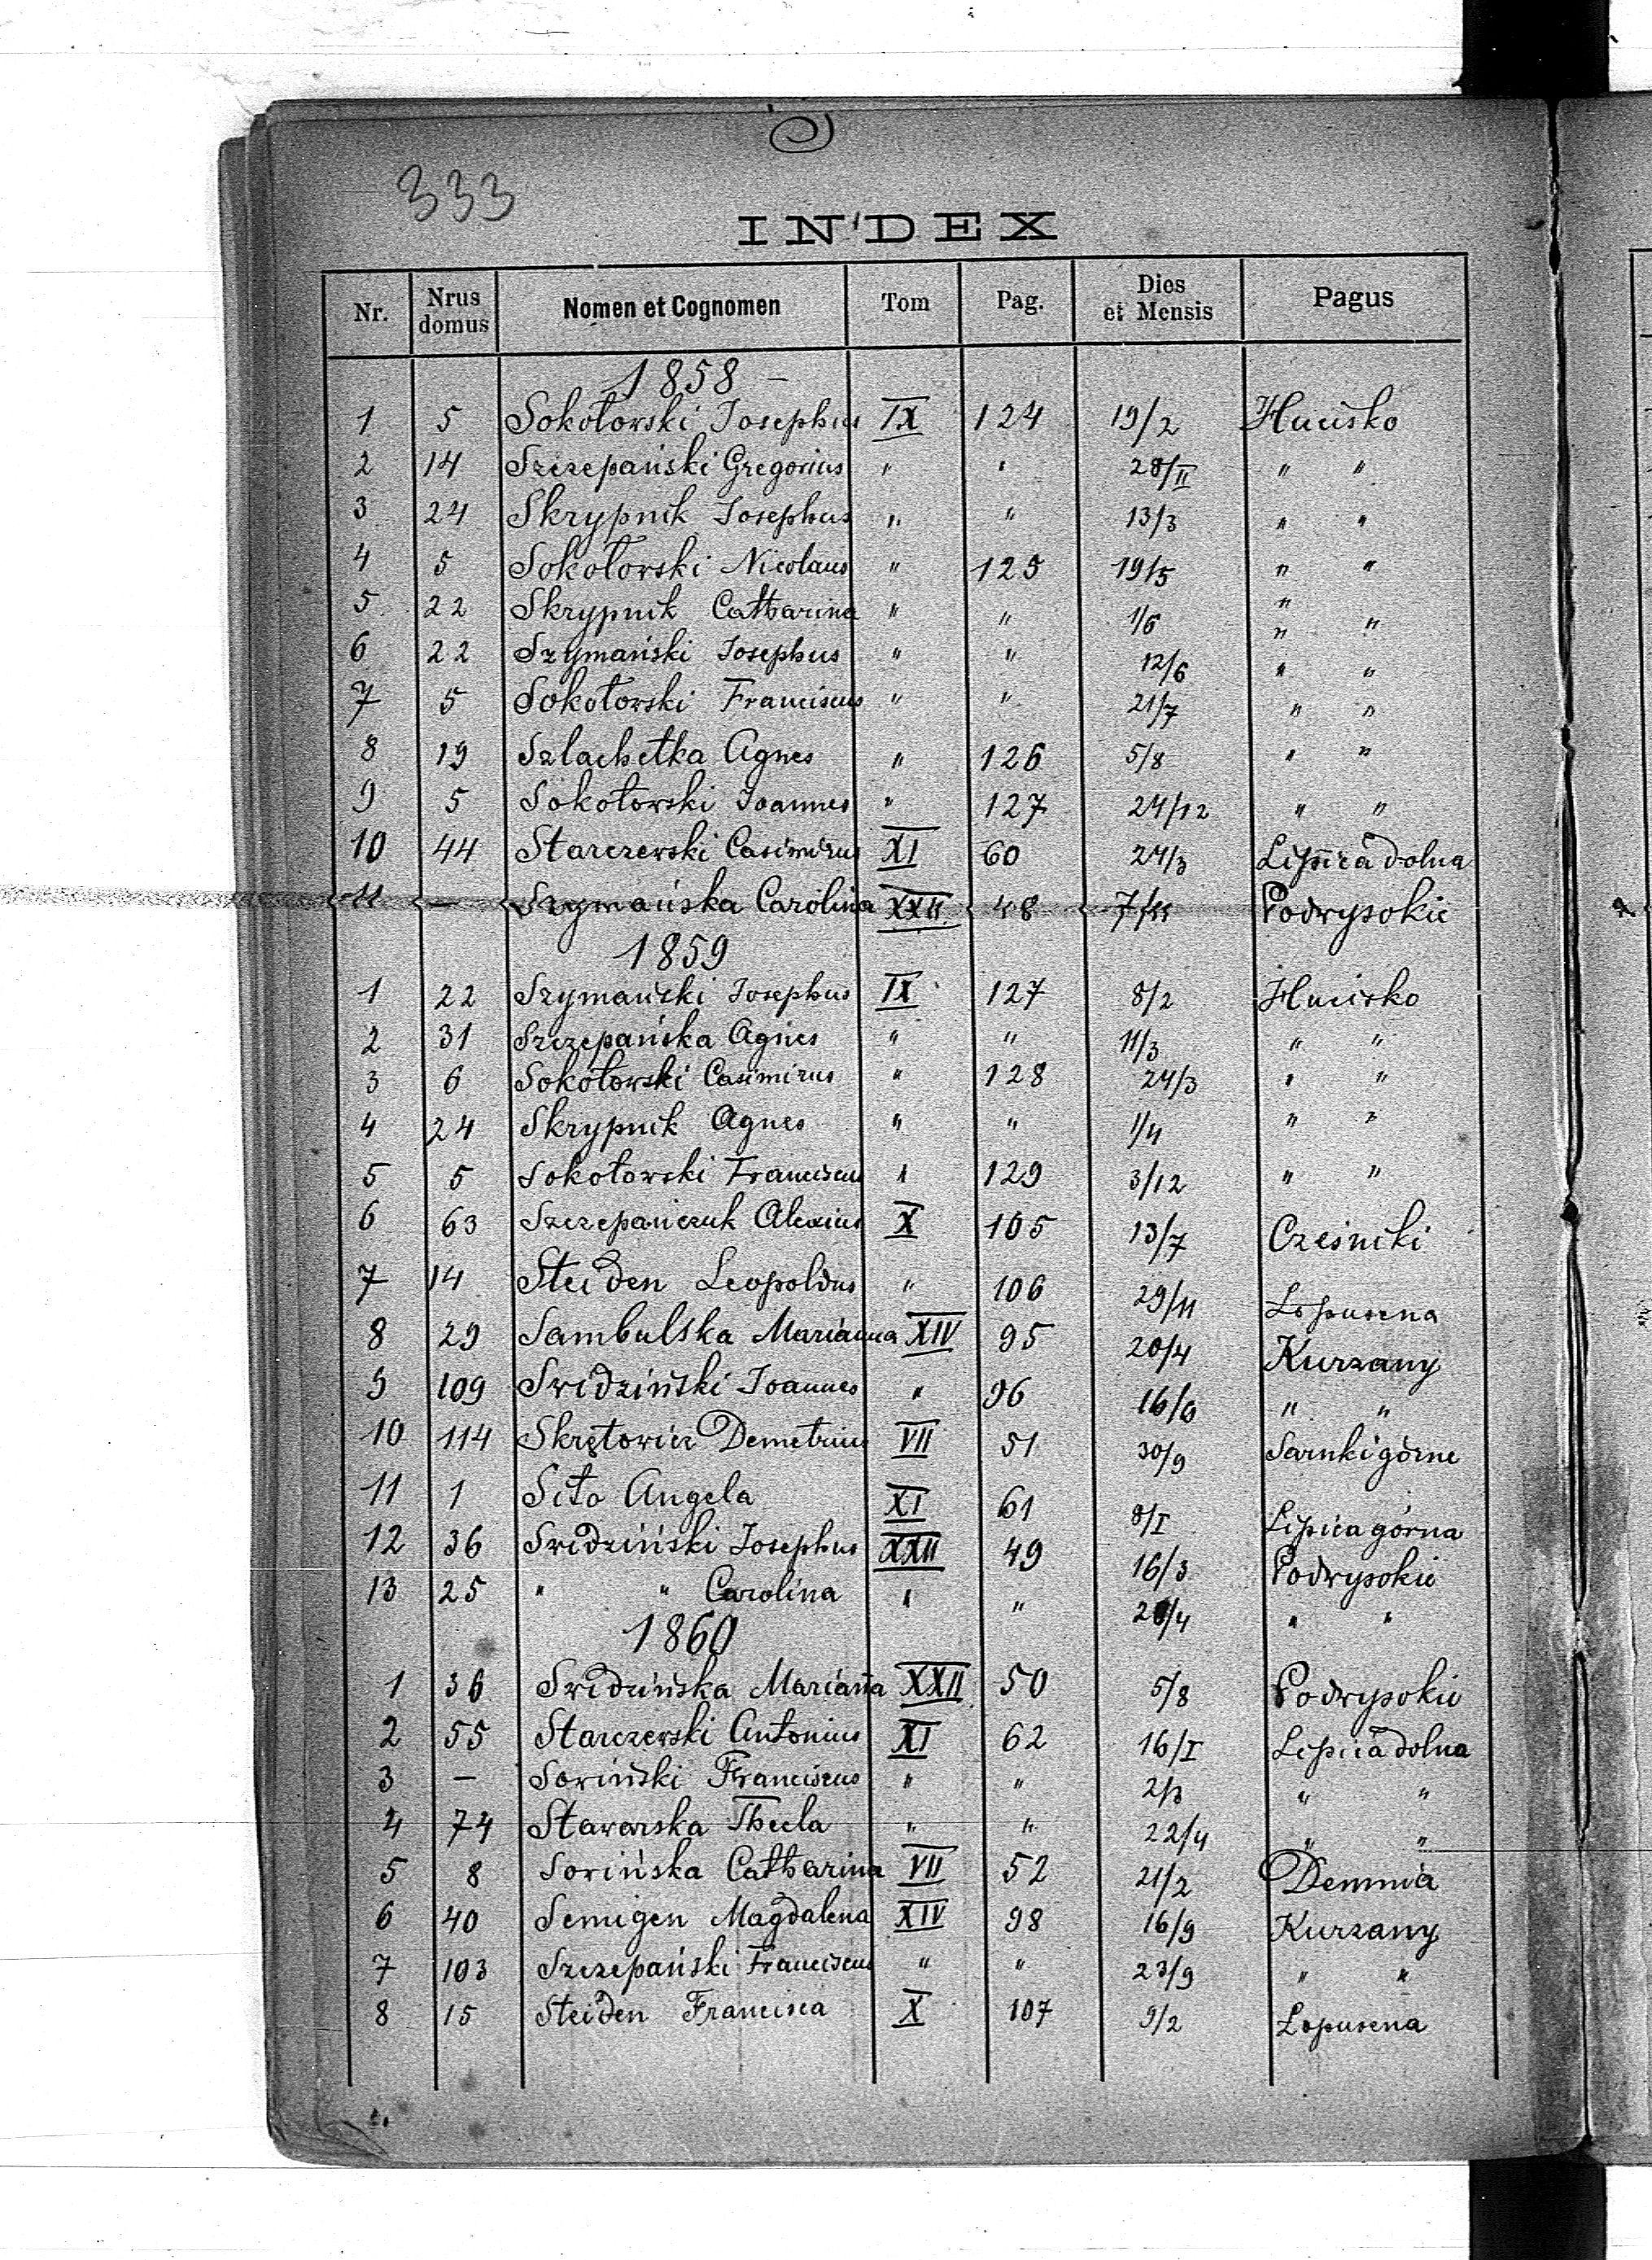 333
INDEX
Nr. Nrus domus Nomen et Cognomen Tom Pag. Dies et Mensis Pagus
1858
1 5 Sokołowski Josephus IX 124 19/2 Hucisko
2 14 Szczepański Gregorius " " 28/II " "
3 24 Skrypnik Josephus " " 13/3 " "
4 5 Sokołowski Nicolaus " 125 19/5 " "
5 22 Skrypnik Catharina " " 1/6 " "
6 22 Szymański Josephus " " 12/6 " "
7 5 Sokołowski Franciscus " " 21/7 " "
8 19 Szlachetka Agnes " 126 5/8 " "
9 5 Sokołowski Joannes " 127 24/12 " "
10 44 Starczewski Casimirus XI 60 24/3 Lipica dolna
11 — Szymańska Carolina XXII 48 7/11 Podwysokie
1859
1 22 Szymański Josephus IX 127 8/2 Hucisko
2 31 Szczepańska Agnes " " 11/3 " "
3 6 Sokołowski Casimirus " 128 24/3 " "
4 24 Skrypnik Agnes " " 1/4 " "
5 5 Sokołowski Franciscus " 129 3/12 " "
6 63 Szczepańczuk Alexius X 105 13/7 Cześniki
7 14 Steiden Leopoldus " 106 29/11 Łopuszna
8 29 Sambulska Marianna XIV 95 20/4 Kurzany
9 109 Swidziński Joannes " 96 16/6 " "
10 114 Skrętowicz Demetrius VII 51 30/9 Sarnki górne
11 1 Sito Angela XI 61 8/I Lipica górna
12 36 Swidziński Josephus XXII 49 16/3 Podwysokie
13 25 " " Carolina " " /4 " "
1860
1 36 Swidzińska Marianna XXII 50 5/8 Podwysokie
2 55 Starczewski Antonius XI 62 16/I Lipica dolna
3 — Sowiński Franciscus " " 2/3 " "
4 74 Stawarska Thecla " " 22/4 " "
5 8 Sowińska Catharina VII 52 21/2 Demnia
6 40 Semigen Magdalena XIV 98 16/9 Kurzany
7 103 Szczepański Franciscus " " 23/9 " "
8 15 Steiden Francisca X 107 9/2 Łopuszna